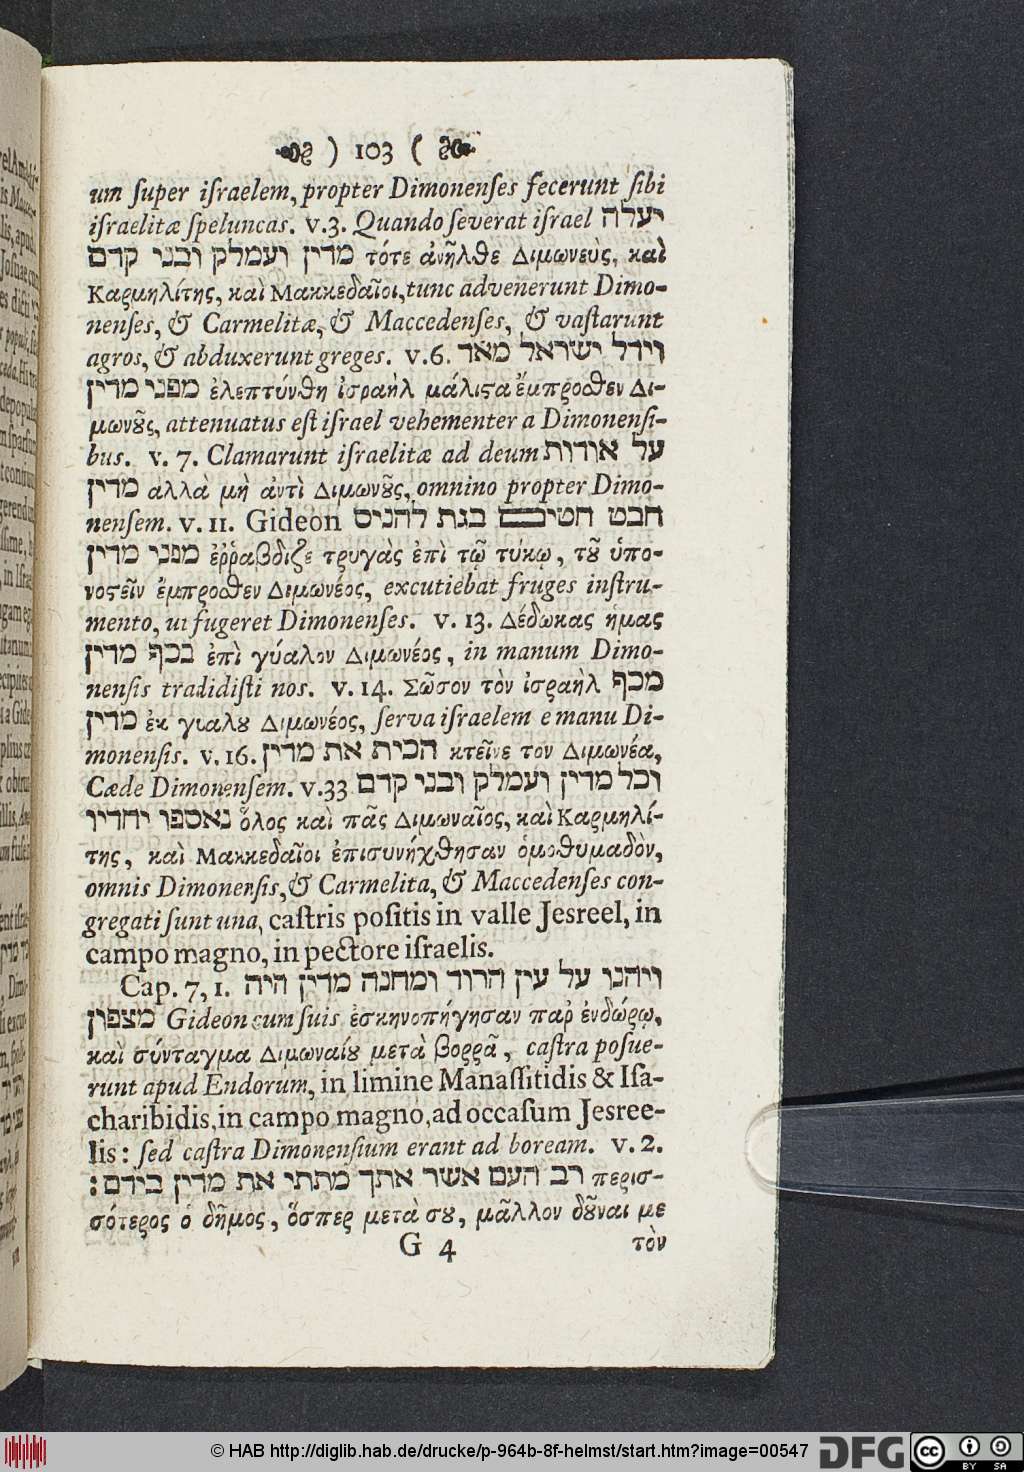 ) 103 (
um ſuper iſraelem, propter Dimonenſes fecerunt ſibi
iſraelitæ ſpeluncas. v.3. Quando ſeverat iſrael יעלה
מדין ועמלק ובני קדם τότε ἀνῆλθε Διμωνεὺς, καὶ
Καρμηλίτης, καὶ Μακκεδαῖοι, tunc advenerunt Dimo-
nenſes, & Carmelitæ, & Maccedenſes, & vaſtarunt
agros, & abduxerunt greges. v.6. וידל ישראל מאד
מפני מדין ἐλεπτύνθη ἰσραὴλ μάλιϛα ἔμπροσθεν Δι-
μωνȣ͂ς, attenuatus eſt iſrael vehementer a Dimonenſi-
bus. v. 7. Clamarunt iſraelitæ ad deum על אודות
מדין αλλὰ μὴ ἀντὶ Διμωνȣ͂ς, omnino propter Dimo-
nenſem. v. 11. Gideon חבט חטים בגת להניס
מפני מדין ἐῤῥαβδιζε τρυγὰς ἐπὶ τῷ τύκῳ, τȣ͂ ὑπο-
νοϛεῖν ἔμπροσθεν Διμωνέος, excutiebat fruges inſtru-
mento, ut fugeret Dimonenſes. v. 13. Δέδωκας ἡμας
בכף מדין ἐπὶ γύαλον Διμωνέος, in manum Dimo-
nenſis tradidiſti nos. v. 14. Σῶσον τὸν ἰσραὴλ מכף
מדין ἐκ γιαλȣ Διμωνέος, ſerva iſraelem e manu Di-
monenſis. v. 16. הכית את מדין κτεῖνε τον Διμωνέα,
Cæde Dimonenſem. v.33 וכל מדין ועמלק ובני קדם
נאספו יחדיו ὅλος καὶ πᾶς Διμωναῖος, καὶ Καρμηλί-
της, καὶ Μακκεδαῖοι ἐπισυνήχθησαν ὁμοθυμαδὸν,
omnis Dimonenſis, & Carmelita, & Maccedenſes con-
gregati ſunt una, caſtris poſitis in valle Jesreel, in
campo magno, in pectore iſraelis.
Cap. 7, 1. ויהנו על עין הרוד ומחנה מדין היה
מצפון Gideon cum ſuis ἐσκηνοπήγησαν παρ ἐνδώρῳ,
καὶ σύνταγμα Διμωναίȣ μετὰ βορρᾶ, caſtra poſue-
runt apud Endorum, in limine Manaſſitidis & Iſa-
charibidis, in campo magno, ad occaſum Jesree-
lis: ſed caſtra Dimonenſium erant ad boream. v. 2.
רב העם אשר אתך מתתי את מדין בידם: περισ-
σότερος ὁ δῆμος, ὅσπερ μετὰ σȣ, μᾶλλον δȣ͂ναι με
G 4 τὸν
© HAB http://diglib.hab.de/drucke/p-964b-8f-helmst/start.htm?image=00547
DFG
cc BY SA